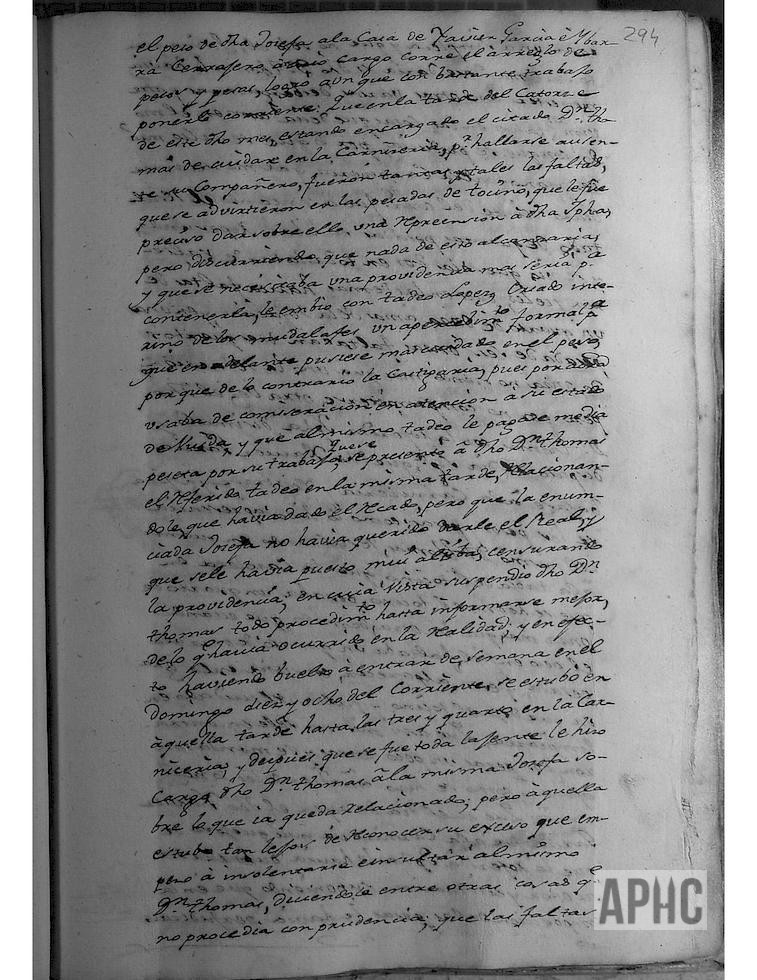 294
el peso de dha Josefa ala Casa de Xavier Garcia è Ybar-
ra Cerragero, à cuio cargo corre el arreglo de
pesos y pesas, logrò aunque con bastante trabajo
ponerle corriente. Que en la tarde del Catorze
de este dho mes, estando encargado el citado Dn. tho-
mas de cuidar en la Carniceria, pr. hallarse ausen-
te su Compañero, fueron tantas y tales las faltas,
que se advirtieron en las pesadas de tocino, que le fue
preciso dar sobre ello una Reprension à dha Jpha,
pero discurriendo que nada de esto alcanzaria,
y que se necesitaba una providencia mas seria pa.
contenerla, le embiò con tadeo Lopez Criado inte-
rino de los mudalafes un apercibimto. formal pa.
que en adelante pusiese mas cuidado en el peso,
porque de lo contrario la Castigaria, pues por ahora
usaba de comiseracion en atencion à su estado
de Viuda, y que al mismo tadeo le pagase media
peseta por su trabajo, que se presentò à dho Dn. thomas
el Referido tadeo en la misma tarde, Relacionan-
dole que havia dado el Recado, pero que la enun-
ciada Josefa no havia querido darle el Real, y
que sele havia puesto mui altiba, censurando
la providencia, en cuia vista suspendiò dho Dn.
thomas todo procedimto. hasta informarse mejor,
de lo q havia ocurrido en la Realidad: y en efec-
to haviendo buelto à entrar de semana en el
Domingo diez y ocho del Corriente, se estubo en
àquella tarde hasta las tres y quarto en la Car-
niceria, y despues que se fue toda la jente le hizo
Cargo dho Dn. thomas à la misma Josefa so-
bre lo que ia queda Relacionado; pero àquella
estubo tan lejos de Reconocer su exceso que em-
pezò à insolentarse è insultar al mismo
Dn. thomas, diciendole entre otras cosas qe.
no procedia con prudencia; que las faltas
APHC